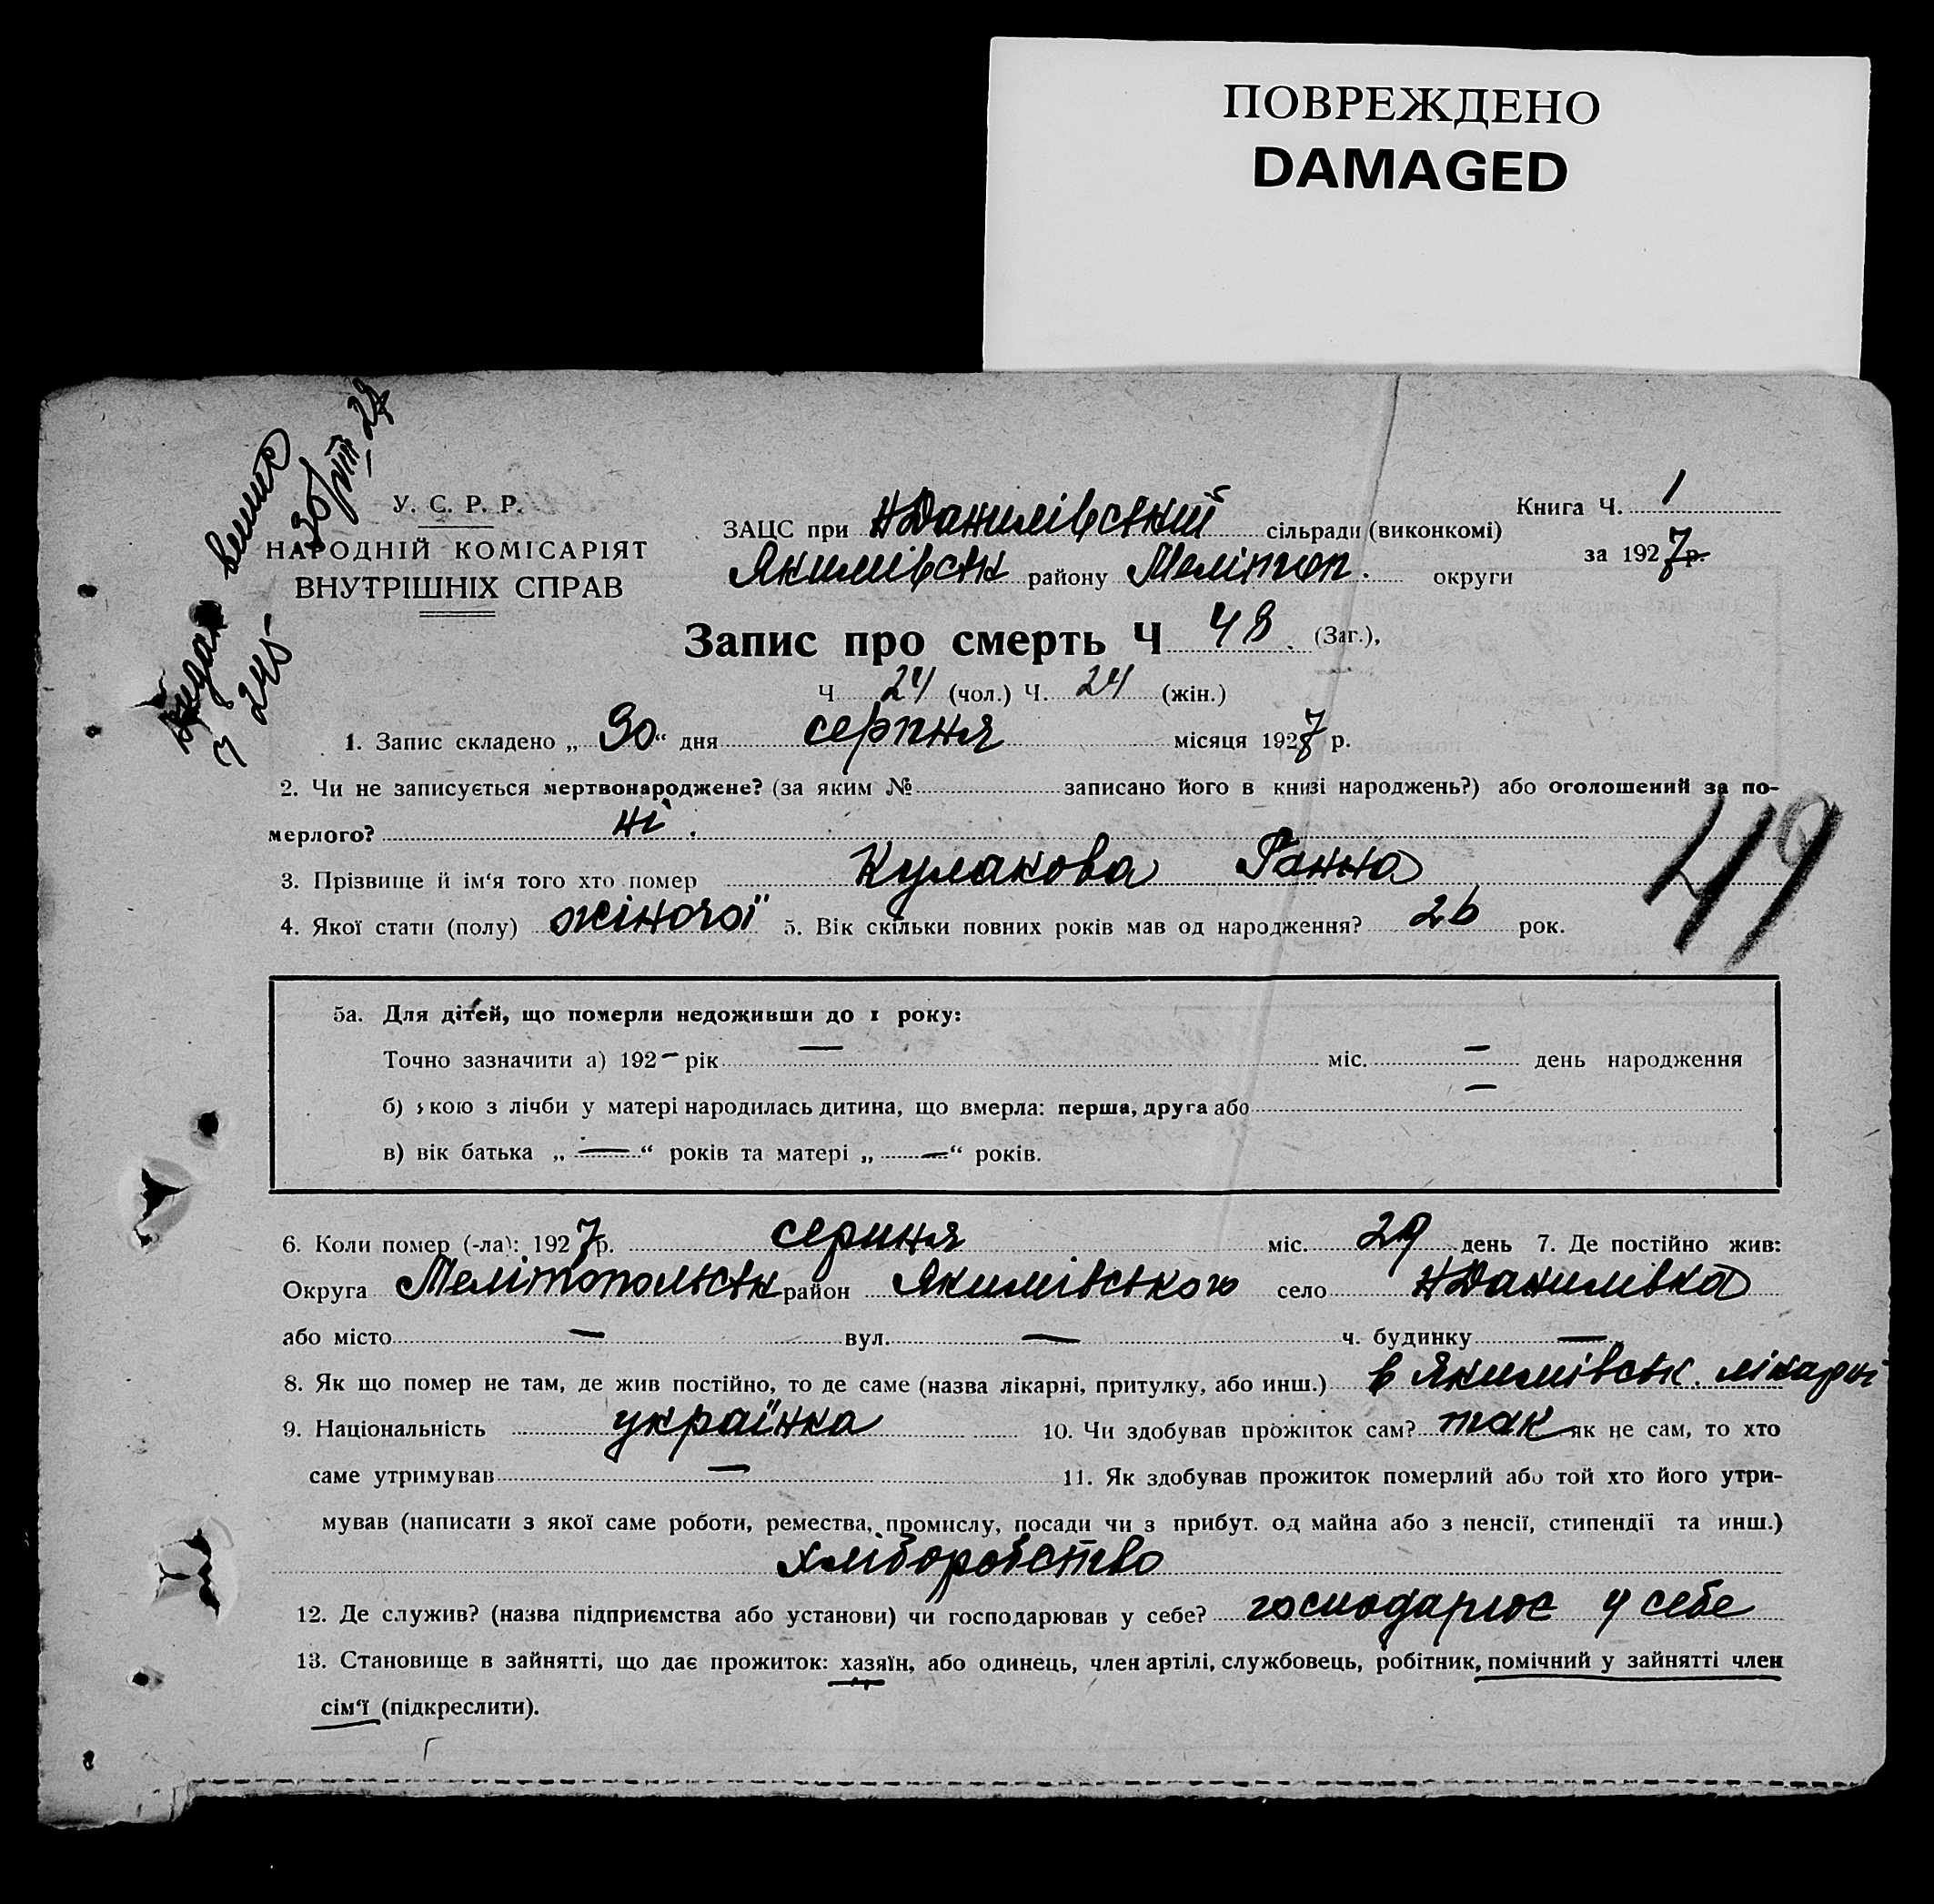 ПОВРЕЖДЕНО
DAMAGED
Видан витяг
Ч 245
30/VIII 27
У. С. Р. Р.
НАРОДНІЙ КОМІСАРІЯТ
ВНУТРІШНІХ СПРАВ
ЗАЦС при НДанилівський сільради (виконкомі)
Якимівськ району Мелітоп. округи
Книга Ч. 1
за 1927 р.
Запис про смерть Ч 48 (Заг.),
Ч 24 (чол.) Ч. 24 (жін.)
1. Запис складено „ 30 “ дня серпня місяця 1927 р.
2. Чи не записується мертвонароджене? (за яким № записано його в книзі народжень?) або оголошений за по-
мерлого? ні.
3. Прізвище й ім‘я того хто помер Кулакова Ганна
49
4. Якої стати (полу) жіночої 5. Вік скільки повних років мав од народження? 26 рок.
5а. Для дітей, що померли недоживши до 1 року:
Точно зазначити а) 192– рік — міс. — день народження
б) якою з лічби у матері народилась дитина, що вмерла: перша, друга або —
в) вік батька „ — “ років та матері „ — “ років.
6. Коли помер (-ла): 1927 р. серпня міс. 29 день 7. Де постійно жив:
Округа Мелітопольськ район Якимівського село НДанилівка
або місто — вул. — ч. будинку —
8. Як що помер не там, де жив постійно, то де саме (назва лікарні, притулку, або инш.) в Якимівськ. лікарні
9. Національність українка 10. Чи здобував прожиток сам? так як не сам, то хто
саме утримував — 11. Як здобував прожиток померлий або той хто його утри-
мував (написати з якої саме роботи, ремества, промислу, посади чи з прибут. од майна або з пенсії, стипендії та инш.)
хліборобство
12. Де служив? (назва підприємства або установи) чи господарював у себе? господарює у себе
13. Становище в зайнятті, що дає прожиток: хазяїн, або одинець, член артілі, службовець, робітник, помічний у зайнятті член
сім‘ї (підкреслити).